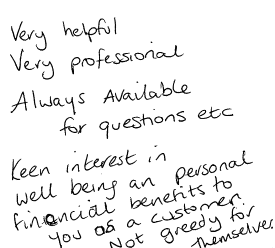 Very helpful
Very professional
Always Available
for questions etc
Keen interest in
well being an personal
financial benefits to
you as a customer
Not greedy for
themselves